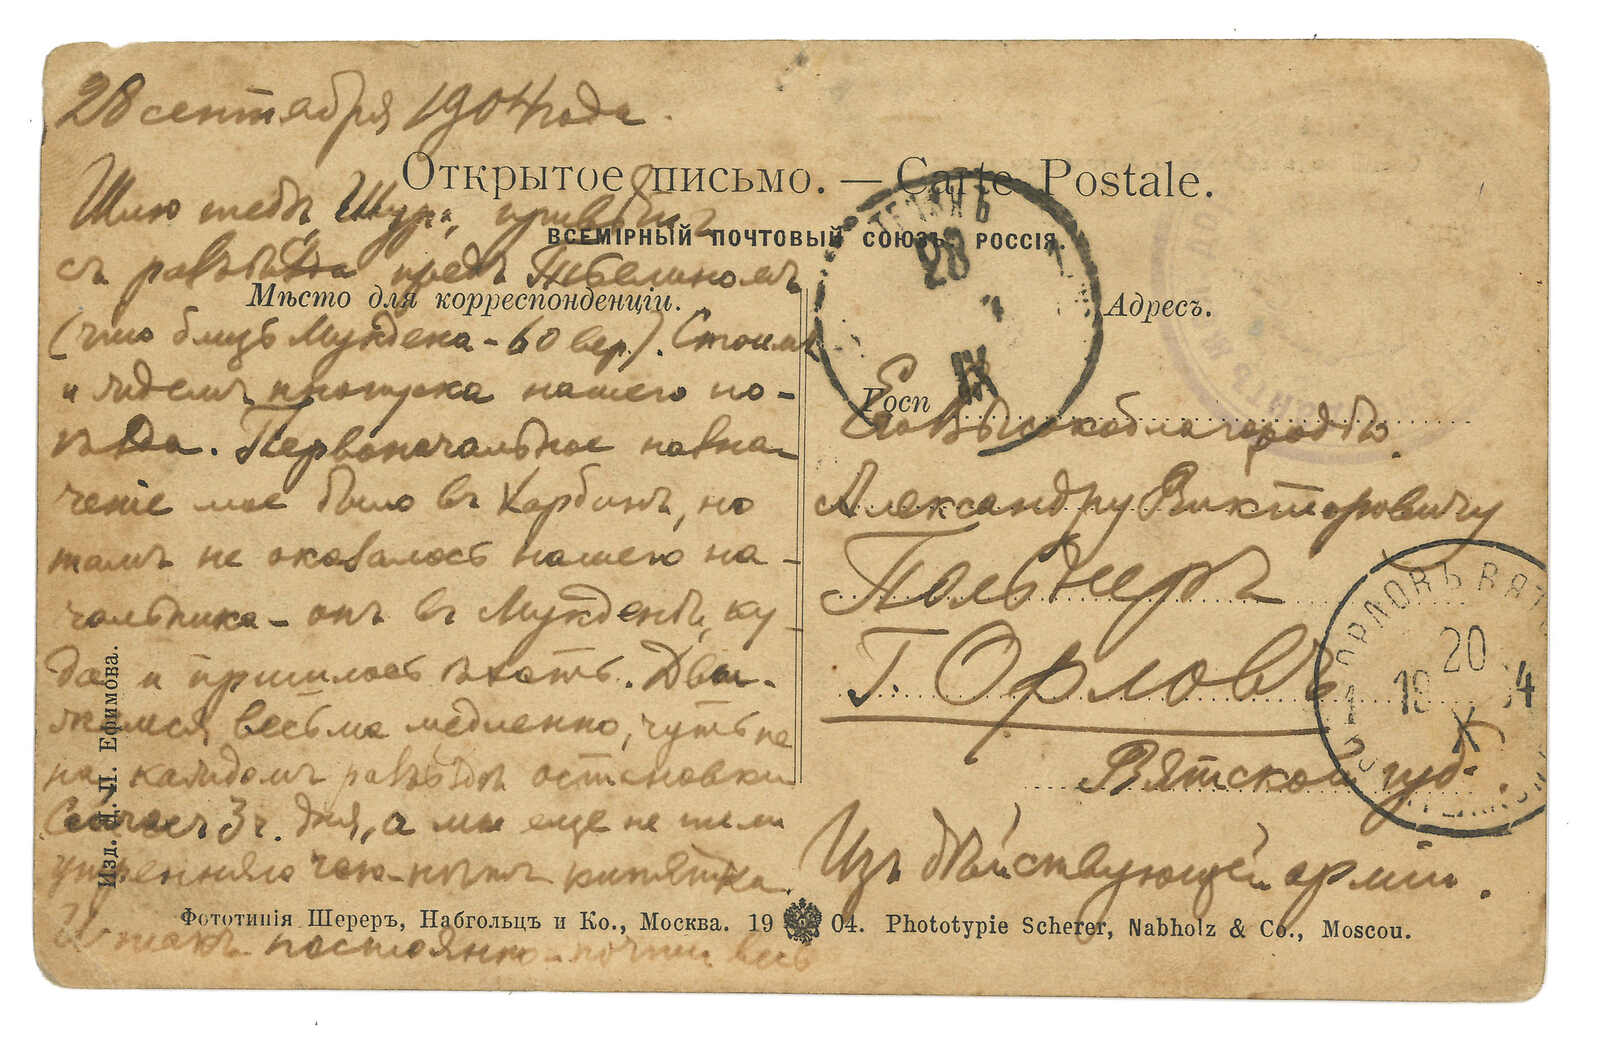 28 сентября 1904 года.
Открытое письмо. — Carte Postale.
Шлю тебѣ, Шура, привѣтъ
ВСЕМІРНЫЙ ПОЧТОВЫЙ СОЮЗЪ. РОССІЯ.
съ разъѣзда предъ
Мѣсто для корреспонденціи.
(что близъ Мукдена - 60 вер.). Стоимъ
и ждемъ пропуска нашего по-
ѣзда. Первоначальное назна-
ченіе мое было въ Харбинъ, но
тамъ не оказалось нашего на-
чальника - онъ въ Мукденѣ, ку-
да и пришлось ѣхать. Дви-
жемся весьма медленно, чуть не
на каждомъ разъѣздѣ остановки
Сейчасъ 3 ч. дня, а мы еще не пили
утренняго чаю - нѣтъ кипятка.
И такъ постоянно - почти весь
Адресъ.
Госп
Его Высокоблагородію
Александру Викторовичу
Польнеръ
г. Орловъ
Вятской губ.
Изъ дѣйствующей арміи.
28
IX
ОРЛОВЪ ВЯТ
20
19 04
X
Изд. Д. П. Ефимова.
Фототипія Шереръ, Набгольцъ и Ко., Москва. 19 04. Phototypie Scherer, Nabholz & Co., Moscou.